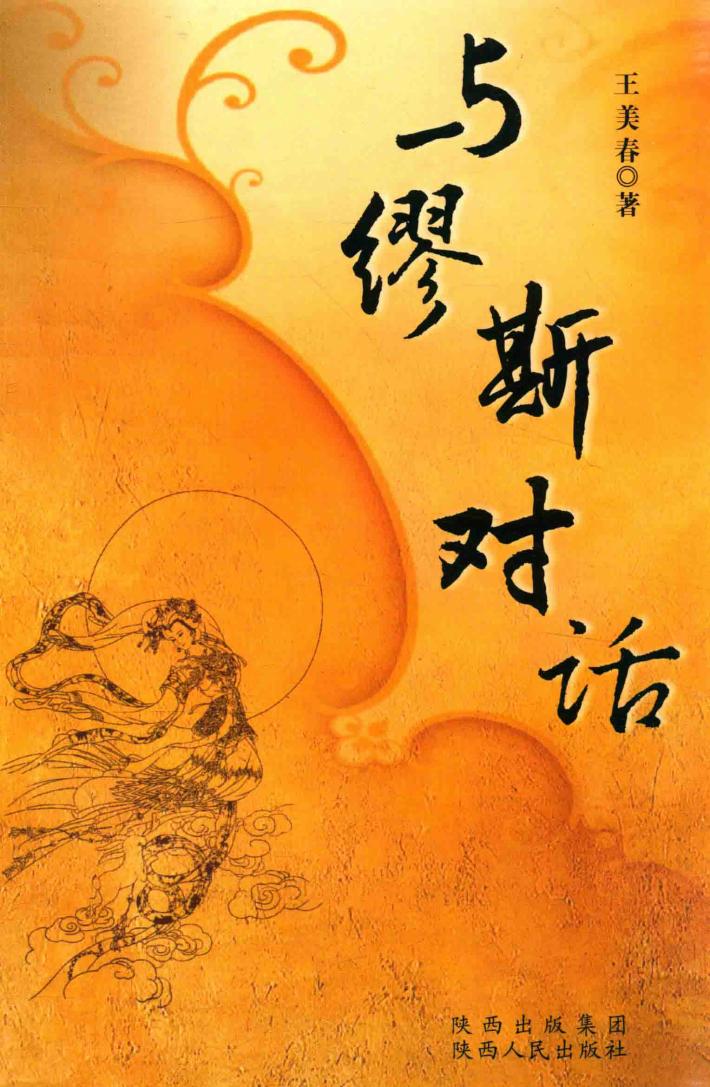 与缪斯对话
王美春◎著
陕西出版集团
陕西人民出版社